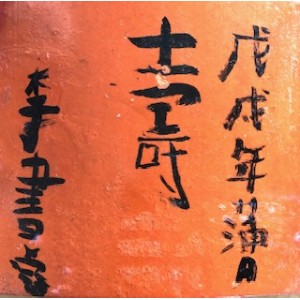 戊戌年蒲月
壽
李書